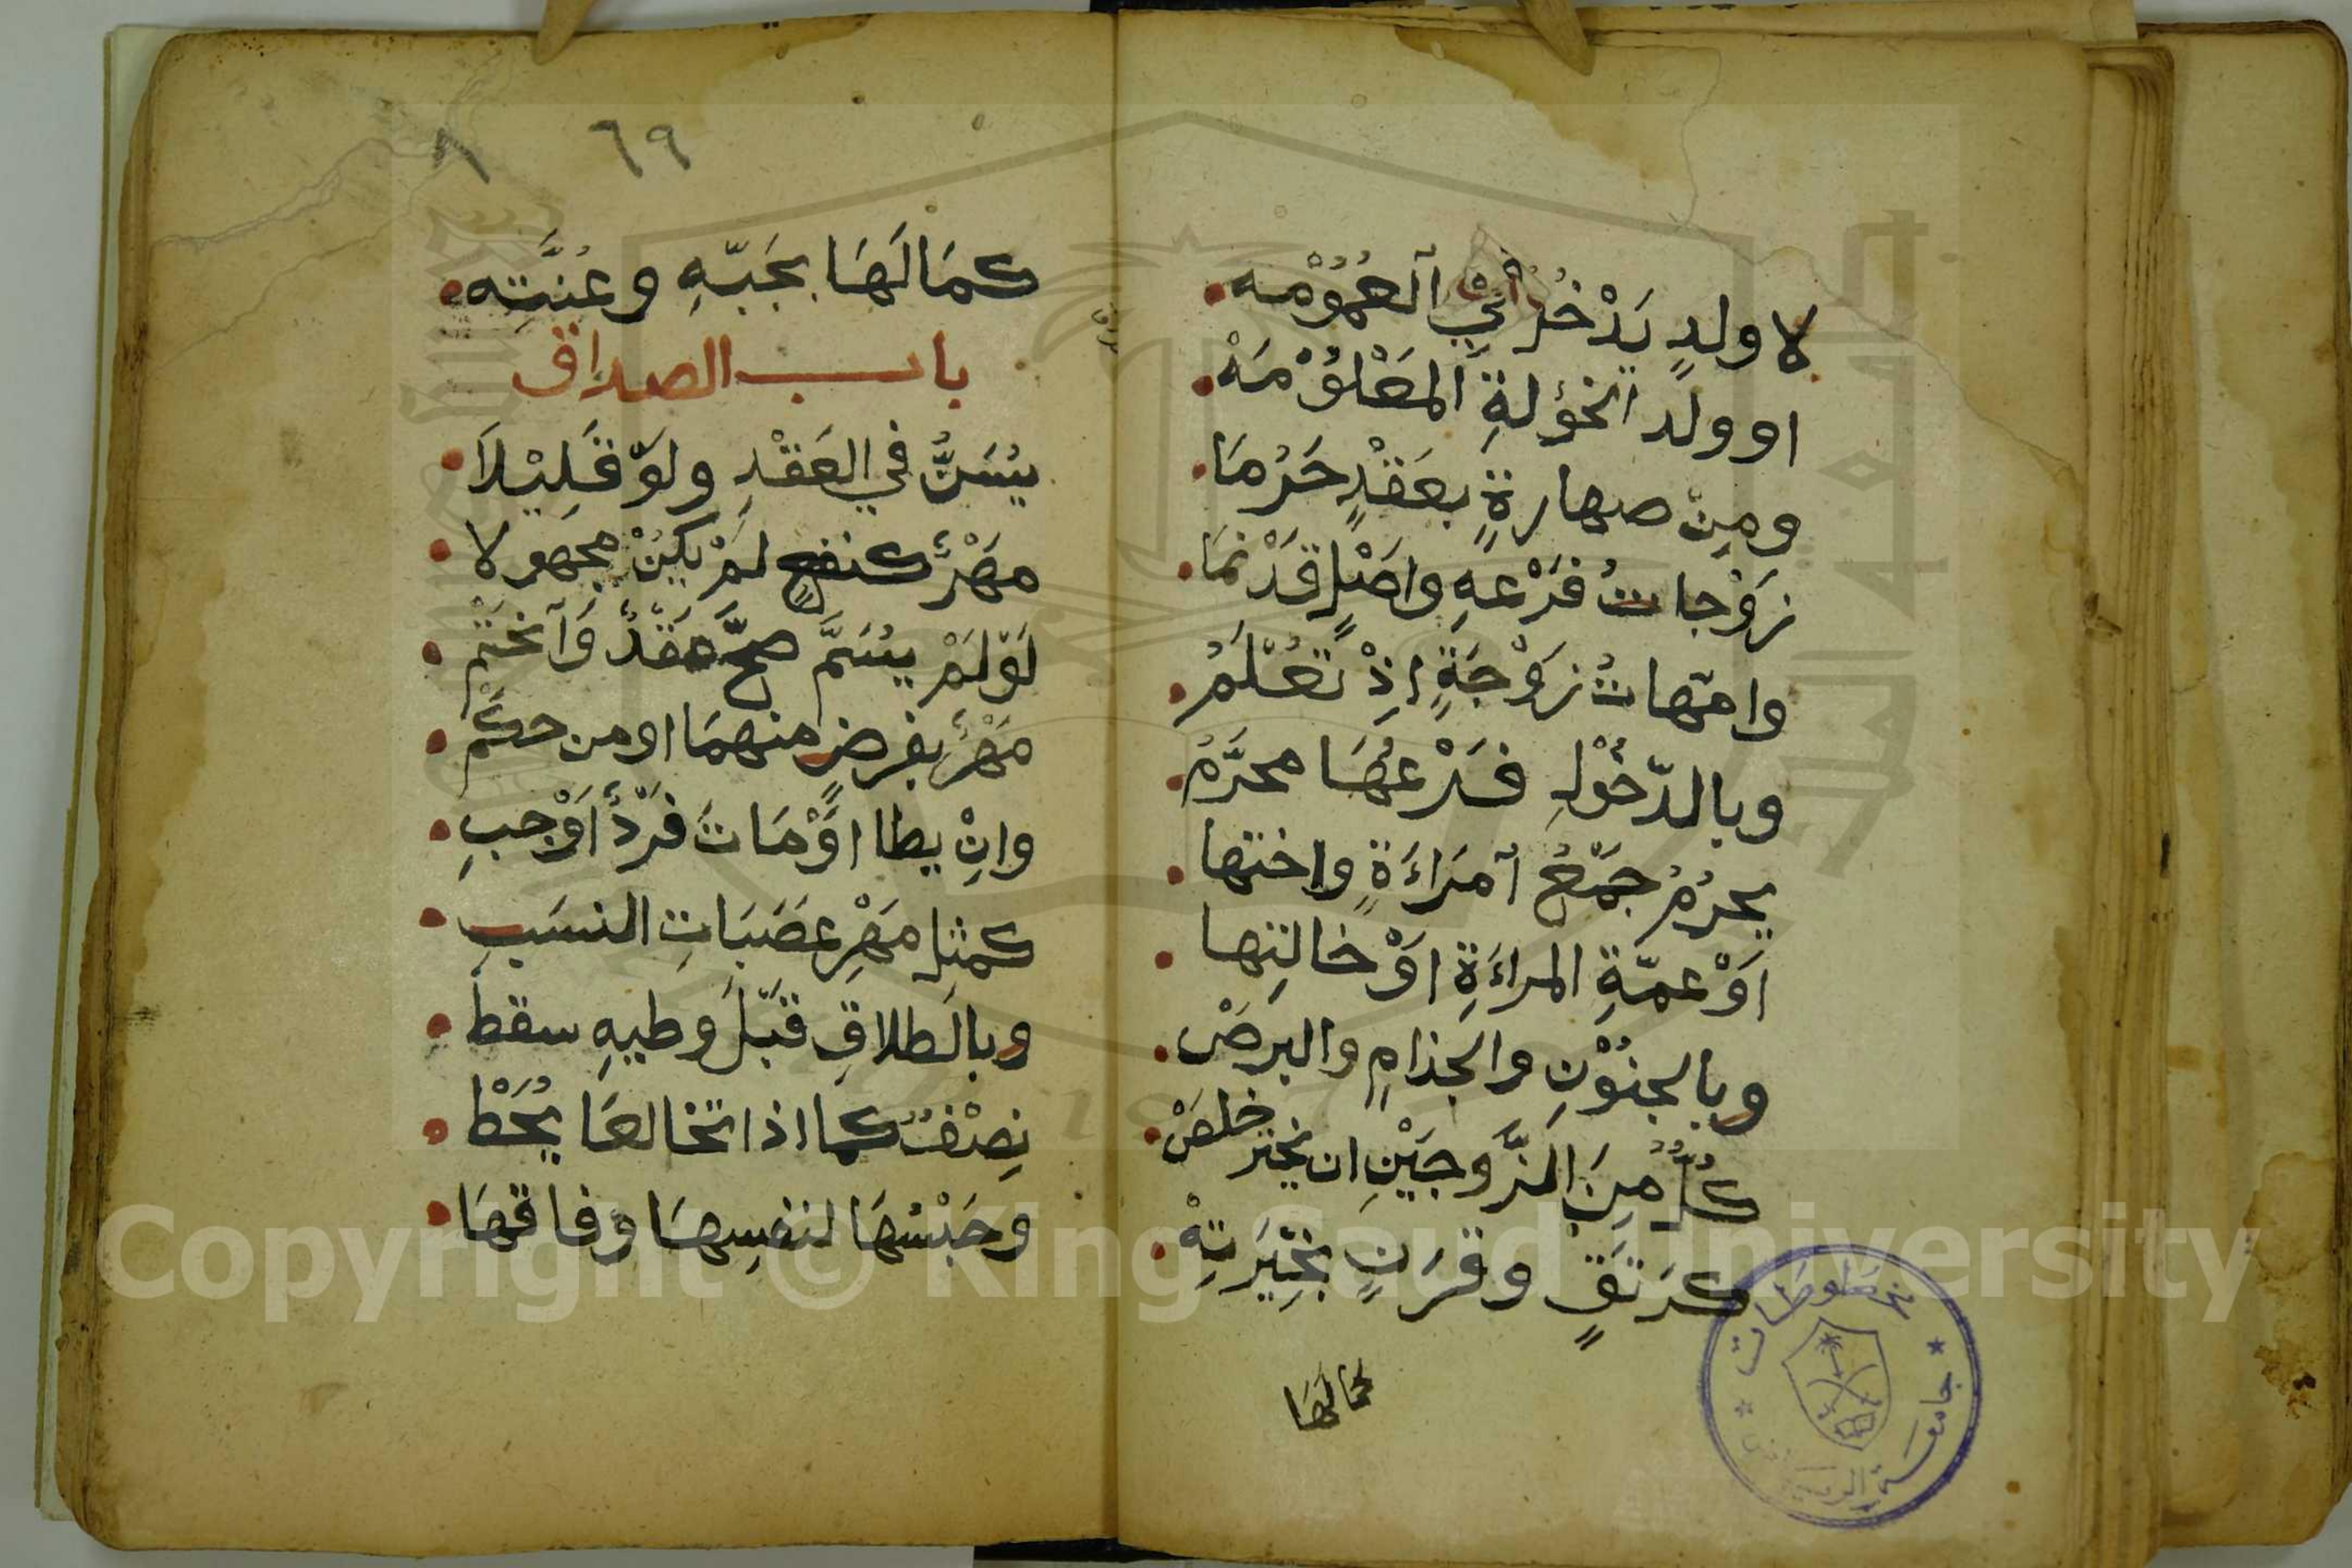 لا ولدٍ يَدْخُلُ في اَلعُمُوْمَه
او ولد الخؤلةِ المَعْلُوْمَهْ
ومِنْ صهارةٍ بعَقْدٍ حَرُمَا
زَوْجاتُ فَرْعهِ واصْلٍ قَدْ نمَا
وامّهاتُ زَوْجَةٍ اِذْ تُعْلَمُ
وبالدّخُوْلِ فَرْعُهَا محرَّمُ
يحرُمُ جَمْعُ اَمرَاءَةٍ واختها
اَوْ عمّةِ المراءَةِ اوْ خالتِها
وبالجنُوْنِ والجذامِ والبرصْ
كُلٌّ مِنَ الزَّوجَيْنِ ان يختر خلصْ
كرَتَقٍ وقرَنٍ بخِيَرَتِهْ
كمالها
كمَالَهَا بجَبّهِ وعُنَّتِه
٦٩
باب الصداق
يُسَنُّ في العَقْدِ ولوْ قَلِيْلَا
مَهْرٌ كنفعٍ لمْ يكُنْ مجهولا
لَوْ لَمْ يُسَمَّ صحَّ عَقْدٌ وَانحَتَم
مَهْرٌ بفرضٍ منهمَا او من حكَم
وانِْ يطا اوْ مَاتَ فَرْدٌ اَوْجبِ
كمثلِ مَهْرِ عَصَبَاتِ النسَبِ
وبالطلاقِ قَبْلَ وطيهِ سقطْ
نِصْفٌ كما اذا تخالعَا يُحَطْ
وحَبْسُهَا لنفسِهَا وفاقهَا
Copyright © King Saud University
مخطوطات
جامعة الرياض